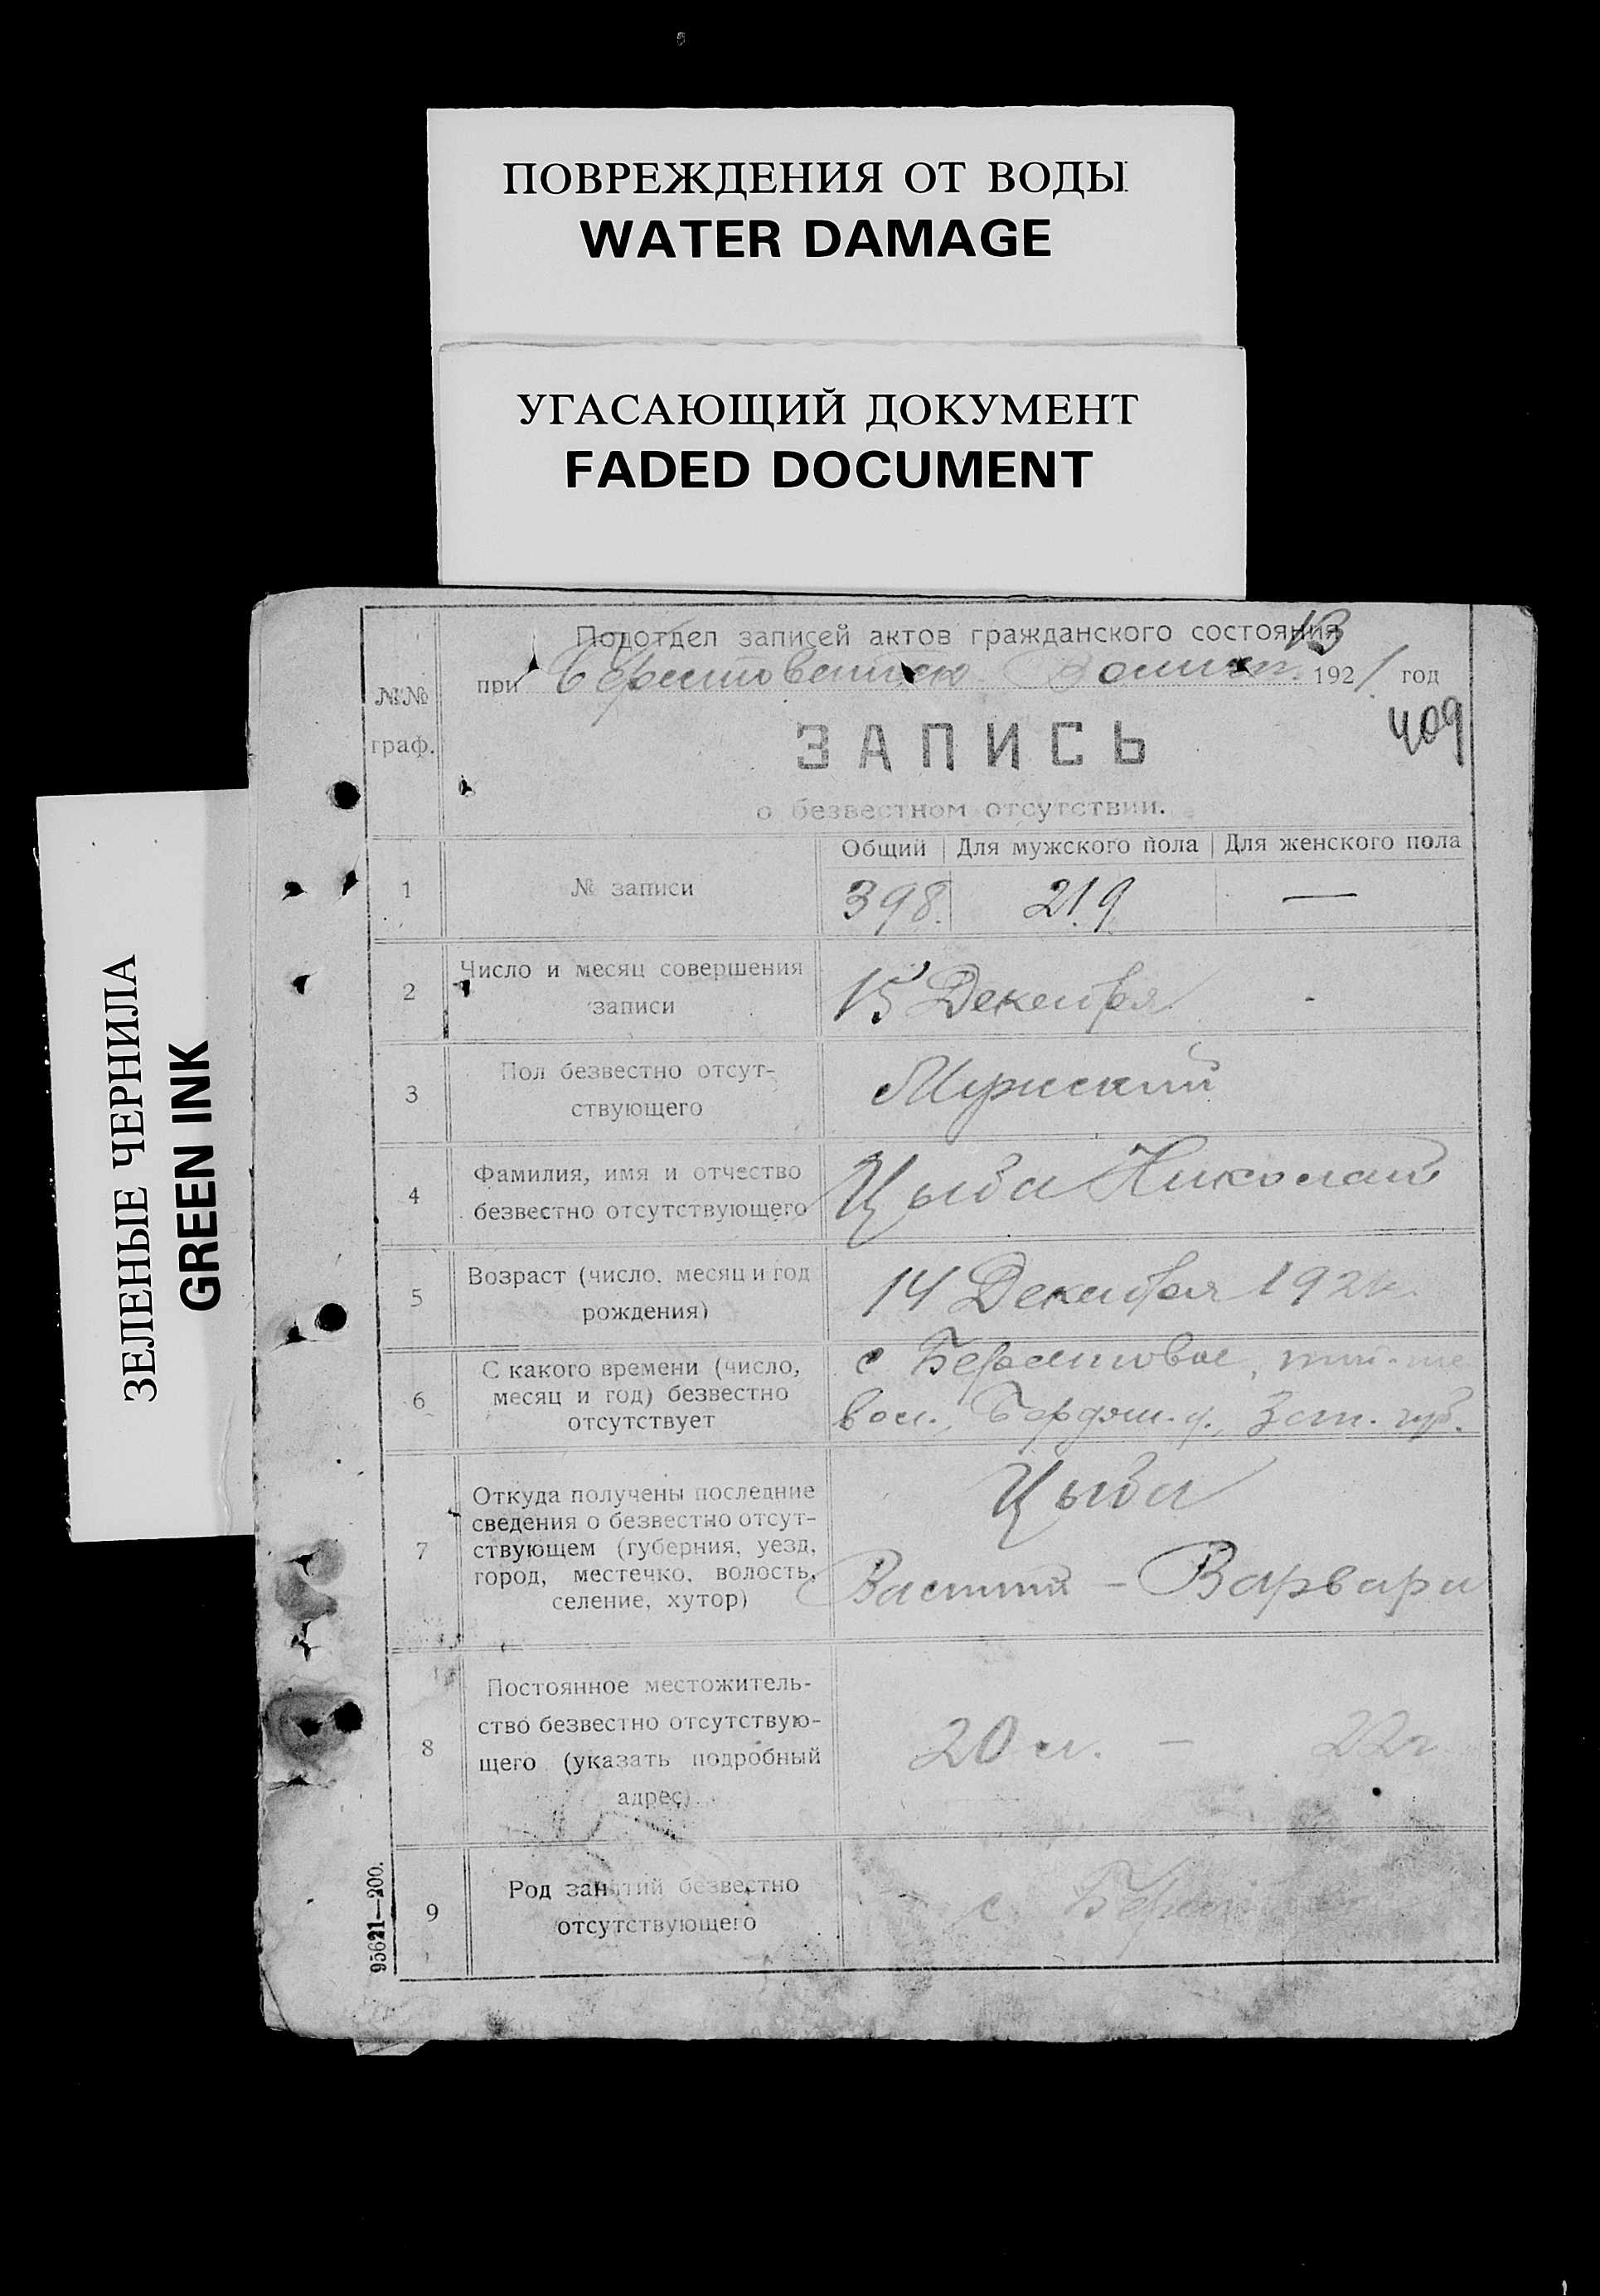 ПОВРЕЖДЕНИЯ ОТ ВОДЫ
WATER DAMAGE
УГАСАЮЩИЙ ДОКУМЕНТ
FADED DOCUMENT
ЗЕЛЕНЫЕ ЧЕРНИЛА
GREEN INK
13
Подотдел записей актов гражданского состояния
при 1921 год
№№
граф.
409
ЗАПИСЬ
о безвестном отсутствии.
Общий Для мужского пола Для женского пола
1 № записи 398. 219 —
2 Число и месяц совершения
записи
15 Декабря
3 Пол безвестно отсут-
ствующего
Мужской
4 Фамилия, имя и отчество
безвестно отсутствующего
Цыба Николай
5 Возраст (число, месяц и год
рождения)
14 Декабря 192
6 С какого времени (число,
месяц и год) безвестно
отсутствует
с Берестовое,
вол., Бердян. у., Зап. губ.
7 Откуда получены последние
сведения о безвестно отсут-
ствующем (губерния, уезд,
город, местечко, волость,
селение, хутор)
Цыба
Василий – Варвара
8 Постоянное местожитель-
ство безвестно отсутствую-
щего (указать подробный
адрес)
20 л. – 22 г
9 Род занятий безвестно
отсутствующего
с.
95621—200.